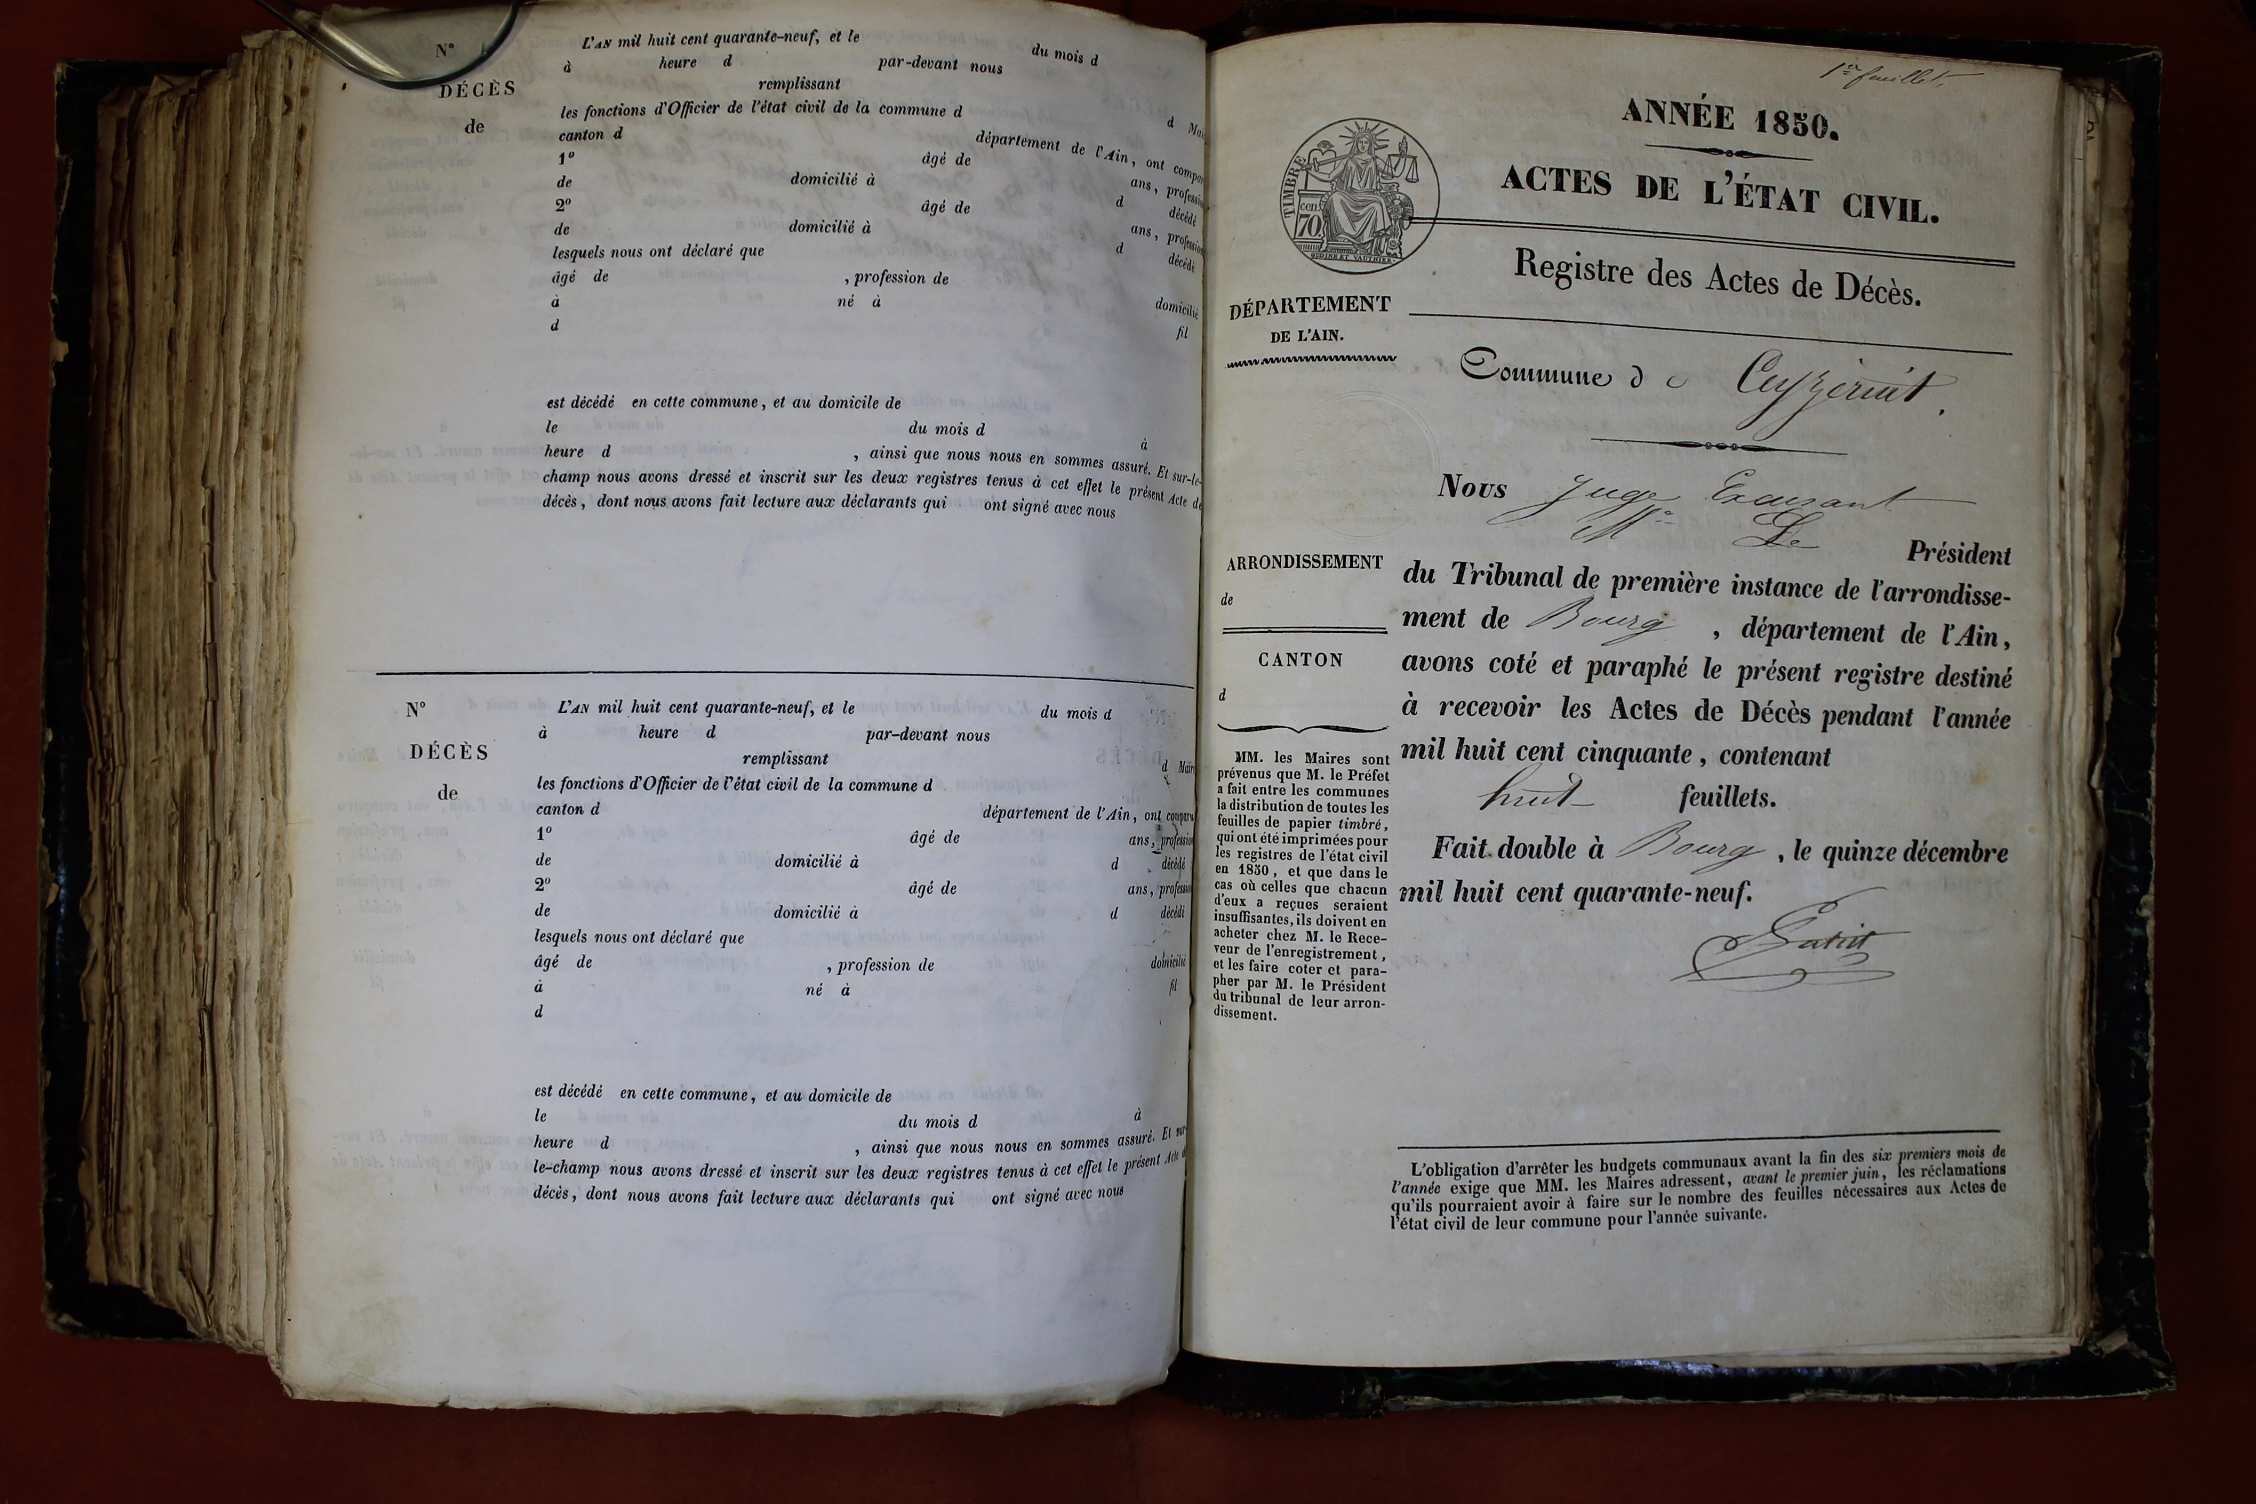 N°
L'AN mil huit cent quarante-neuf, et le du mois d
à heure d par-devant nous
DÉCÈS
remplissant
de
les fonctions d'Officier de l'état civil de la commune d d
canton d département de l'Ain, ont
1° âgé de ans,
de domicilié à d décédé
2° âgé de ans,
de domicilié à d décédé
lesquels nous ont déclaré que
âgé de , profession de domicilié
à né à fil
d
est décédé en cette commune, et au domicile de
le du mois d à
heure d , ainsi que nous nous en sommes assuré. Et sur-le-
champ nous avons dressé et inscrit sur les deux registres tenus à cet effet le présent Acte de
décès, dont nous avons fait lecture aux déclarants qui ont signé avec nous
N°
L'AN mil huit cent quarante-neuf, et le du mois d
à heure d par-devant nous
DÉCÈS
remplissant d Maire
de
les fonctions d'Officier de l'état civil de la commune d
canton d département de l'Ain, ont
1° âgé de ans,
de domicilié à d décédé
2° âgé de ans,
de domicilié à d décédé
lesquels nous ont déclaré que
âgé de , profession de domicilié
à né à fil
d
est décédé en cette commune, et au domicile de
le du mois d à
heure d , ainsi que nous nous en sommes assuré. Et
le-champ nous avons dressé et inscrit sur les deux registres tenus à cet effet le présent Acte
décès, dont nous avons fait lecture aux déclarants qui ont signé avec nous
1er feuillet.
ANNÉE 1850.
ACTES DE L'ÉTAT CIVIL.
TIMBRE
cen.
70.
Registre des Actes de Décès.
DÉPARTEMENT
DE L'AIN.
Commune de Ceyzériat.
Nous Juge
Mr Le Président
ARRONDISSEMENT
de
CANTON
d
du Tribunal de première instance de l'arrondisse-
ment de Bourg, département de l'Ain,
avons coté et paraphé le présent registre destiné
à recevoir les Actes de Décès pendant l'année
mil huit cent cinquante, contenant
huit feuillets.
Fait double à Bourg, le quinze décembre
mil huit cent quarante-neuf.
MM. les Maires sont
prévenus que M. le Préfet
a fait entre les communes
la distribution de toutes les
feuilles de papier timbré,
qui ont été imprimées pour
les registres de l'état civil
en 1850, et que dans le
cas où celles que chacun
d'eux a reçues seraient
insuffisantes, ils doivent en
acheter chez M. le Rece-
veur de l'enregistrement,
et les faire coter et para-
pher par M. le Président
du tribunal de leur arron-
dissement.
L'obligation d'arrêter les budgets communaux avant la fin des six premiers mois de
l'année exige que MM. les Maires adressent, avant le premier juin, les réclamations
qu'ils pourraient avoir à faire sur le nombre des feuilles nécessaires aux Actes de
l'état civil de leur commune pour l'année suivante.